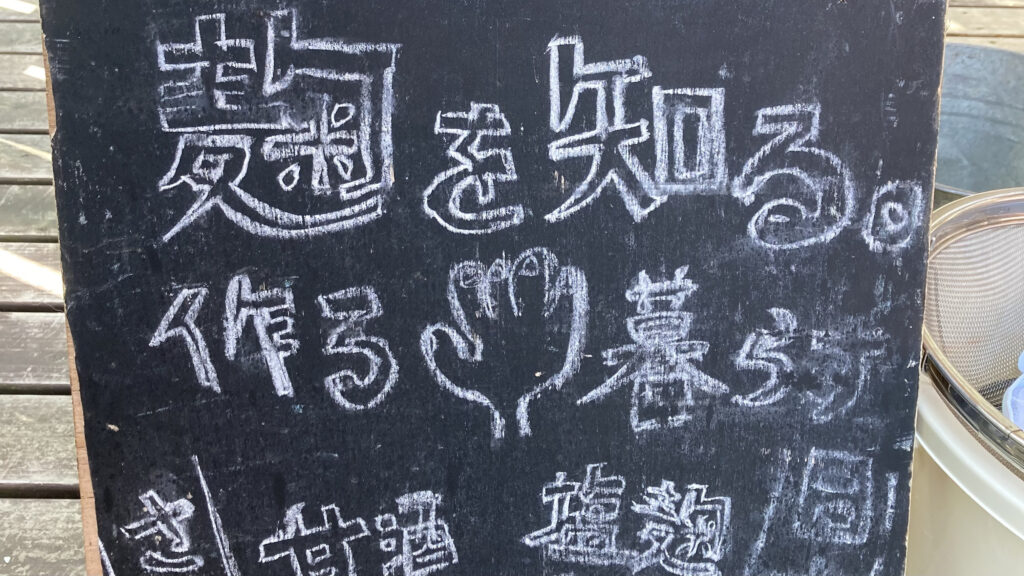 麹を知る。
作る 暮らす
き 甘酒 塩麹